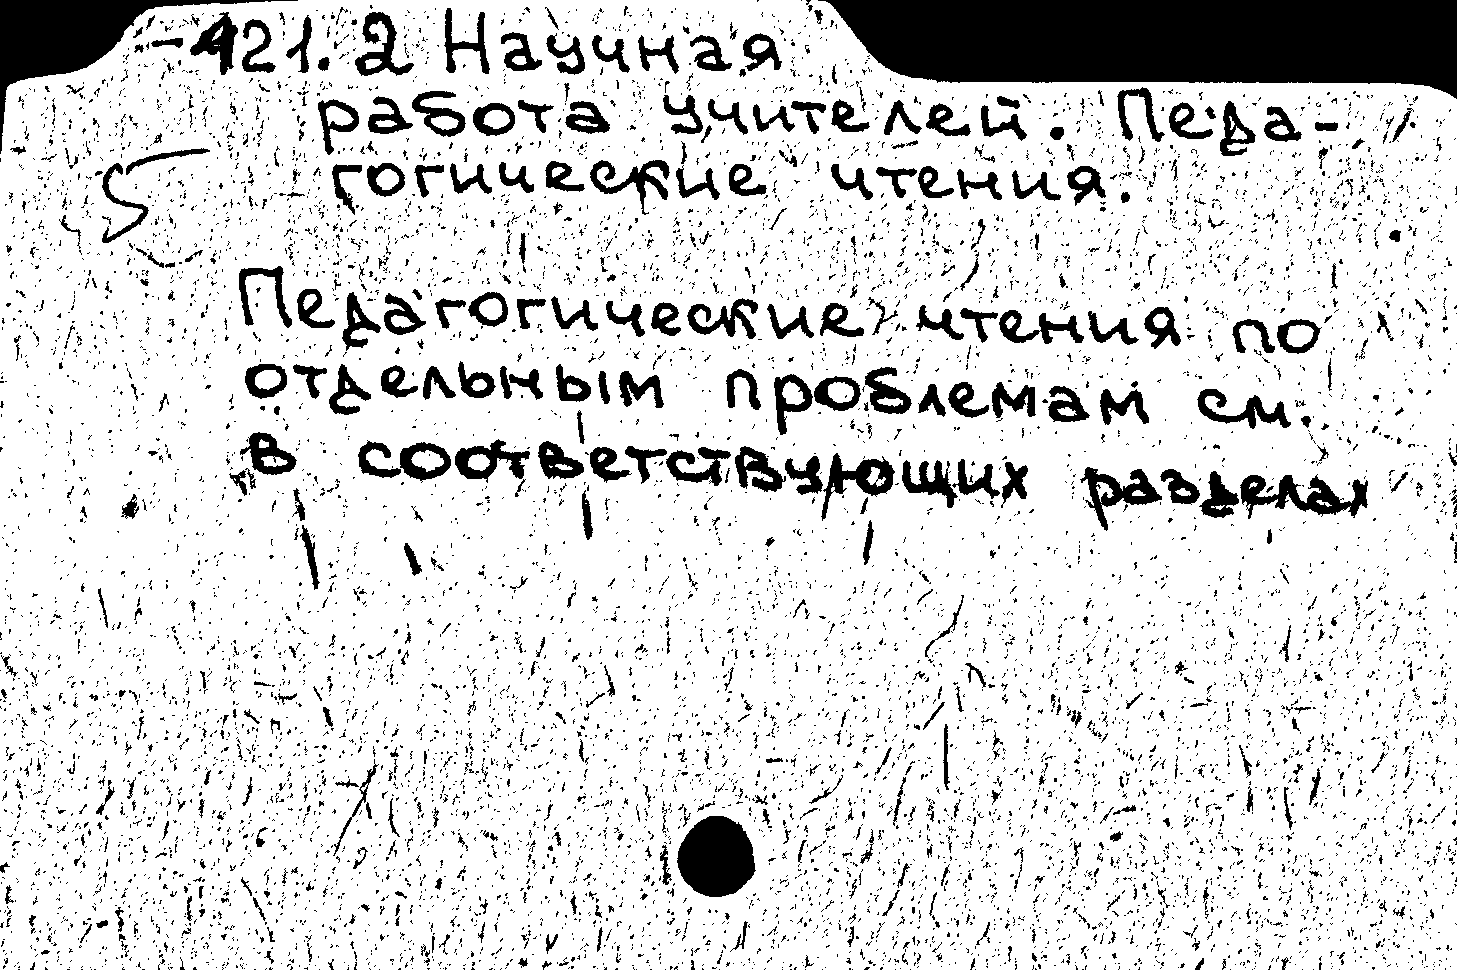 -421.2 Научная
работа учителей. Педа-
5 гогические чтения.
Педагогические чтения по
отдельным проблемам см.
в соответствующих разделах